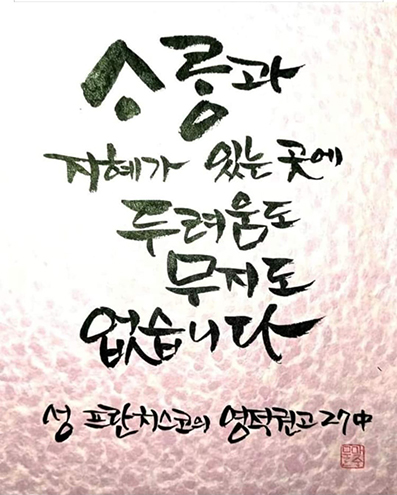 ᄉᆞᄅᆞᆼ과
지혜가 있는 곳에
두려움도
무지도
없습니다
성 프란치스코의 영적권고 27中